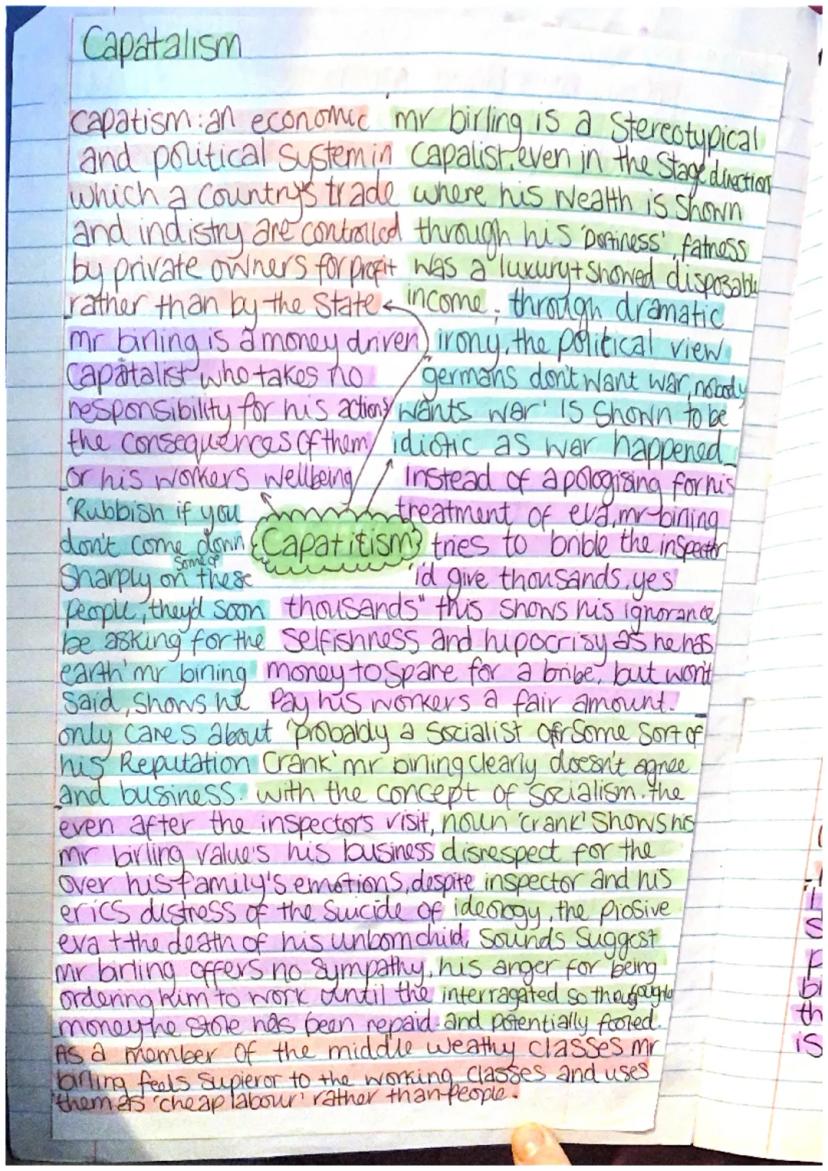 Capatalism
capatism: an economic
and political system in
which a country's trade
and indistry are controlled
by private owners for profit
rather than by the State
mr birling is a money driven
capatalist who takes no
responsibility for his actions
the consequences of them
or his workers wellbeing
'Rubbish if you
don't come down
Sharply on some of these
people, they'd soon
be asking for the
earth' mr birling
said, shows he
only cares about
his Reputation
and business.
even after the inspectors visit,
mr birling value's his business
over his family's emotions, despite
erics distress of the suicide of
eva + the death of his unborn child,
mr birling offers no sympathy,
ordering him to work until the
money he stole has been repaid.
mr birling is a Stereotypical
capalist, even in the stage direction
where his wealth is shown
through his 'portiness', fatness
was a luxury + showed disposable
income. through dramatic
irony, the political view
germans don't want war, nobody
wants war' is shown to be
idiotic as war happened
Capatitism
Instead of apologising for his
treatment of eva, mr birling
tries to brible the inspector
i'd give thousands, yes
thousands" this shows his ignorance,
selfishness and hipocrisy as he has
money to spare for a bribe, but won't
pay his workers a fair amount.
'probably a socialist or some sort of
Crank' mr birling clearly doesn't agree
with the concept of socialism. the
noun 'crank' shows his
disrespect for the
inspector and his
ideology, the plosive
sounds suggest
his anger for being
interragated so thoughally
and potentially fooled.
As a member of the middle weathy classes mr
birling feels supieror to the working classes and uses
them as 'cheap labour' rather than people.